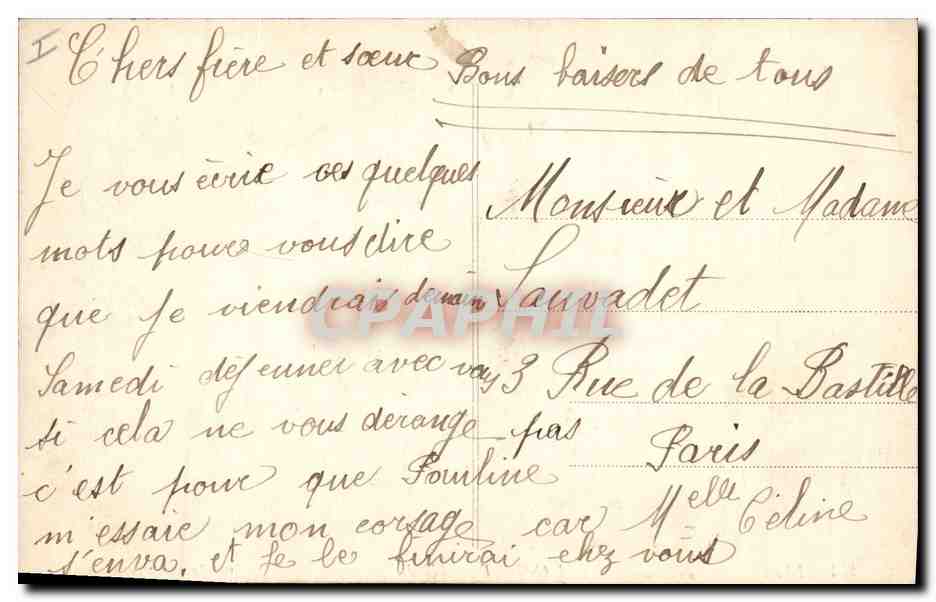 I
Chers frère et sœur
Je vous écrie ces quelques
mots pour vous dire
que je viendrais demain
Samedi déjeunner avec vous
si cela ne vous dérange pas
c'est pour que Pauline
m'essaie mon corsage car Melle Céline
s'enva, et Je le finirai chez vous
Bons baisers de tous
Monsieur et Madame
Sauvadet
3 Rue de la Bastille
Paris
CPAPHIL